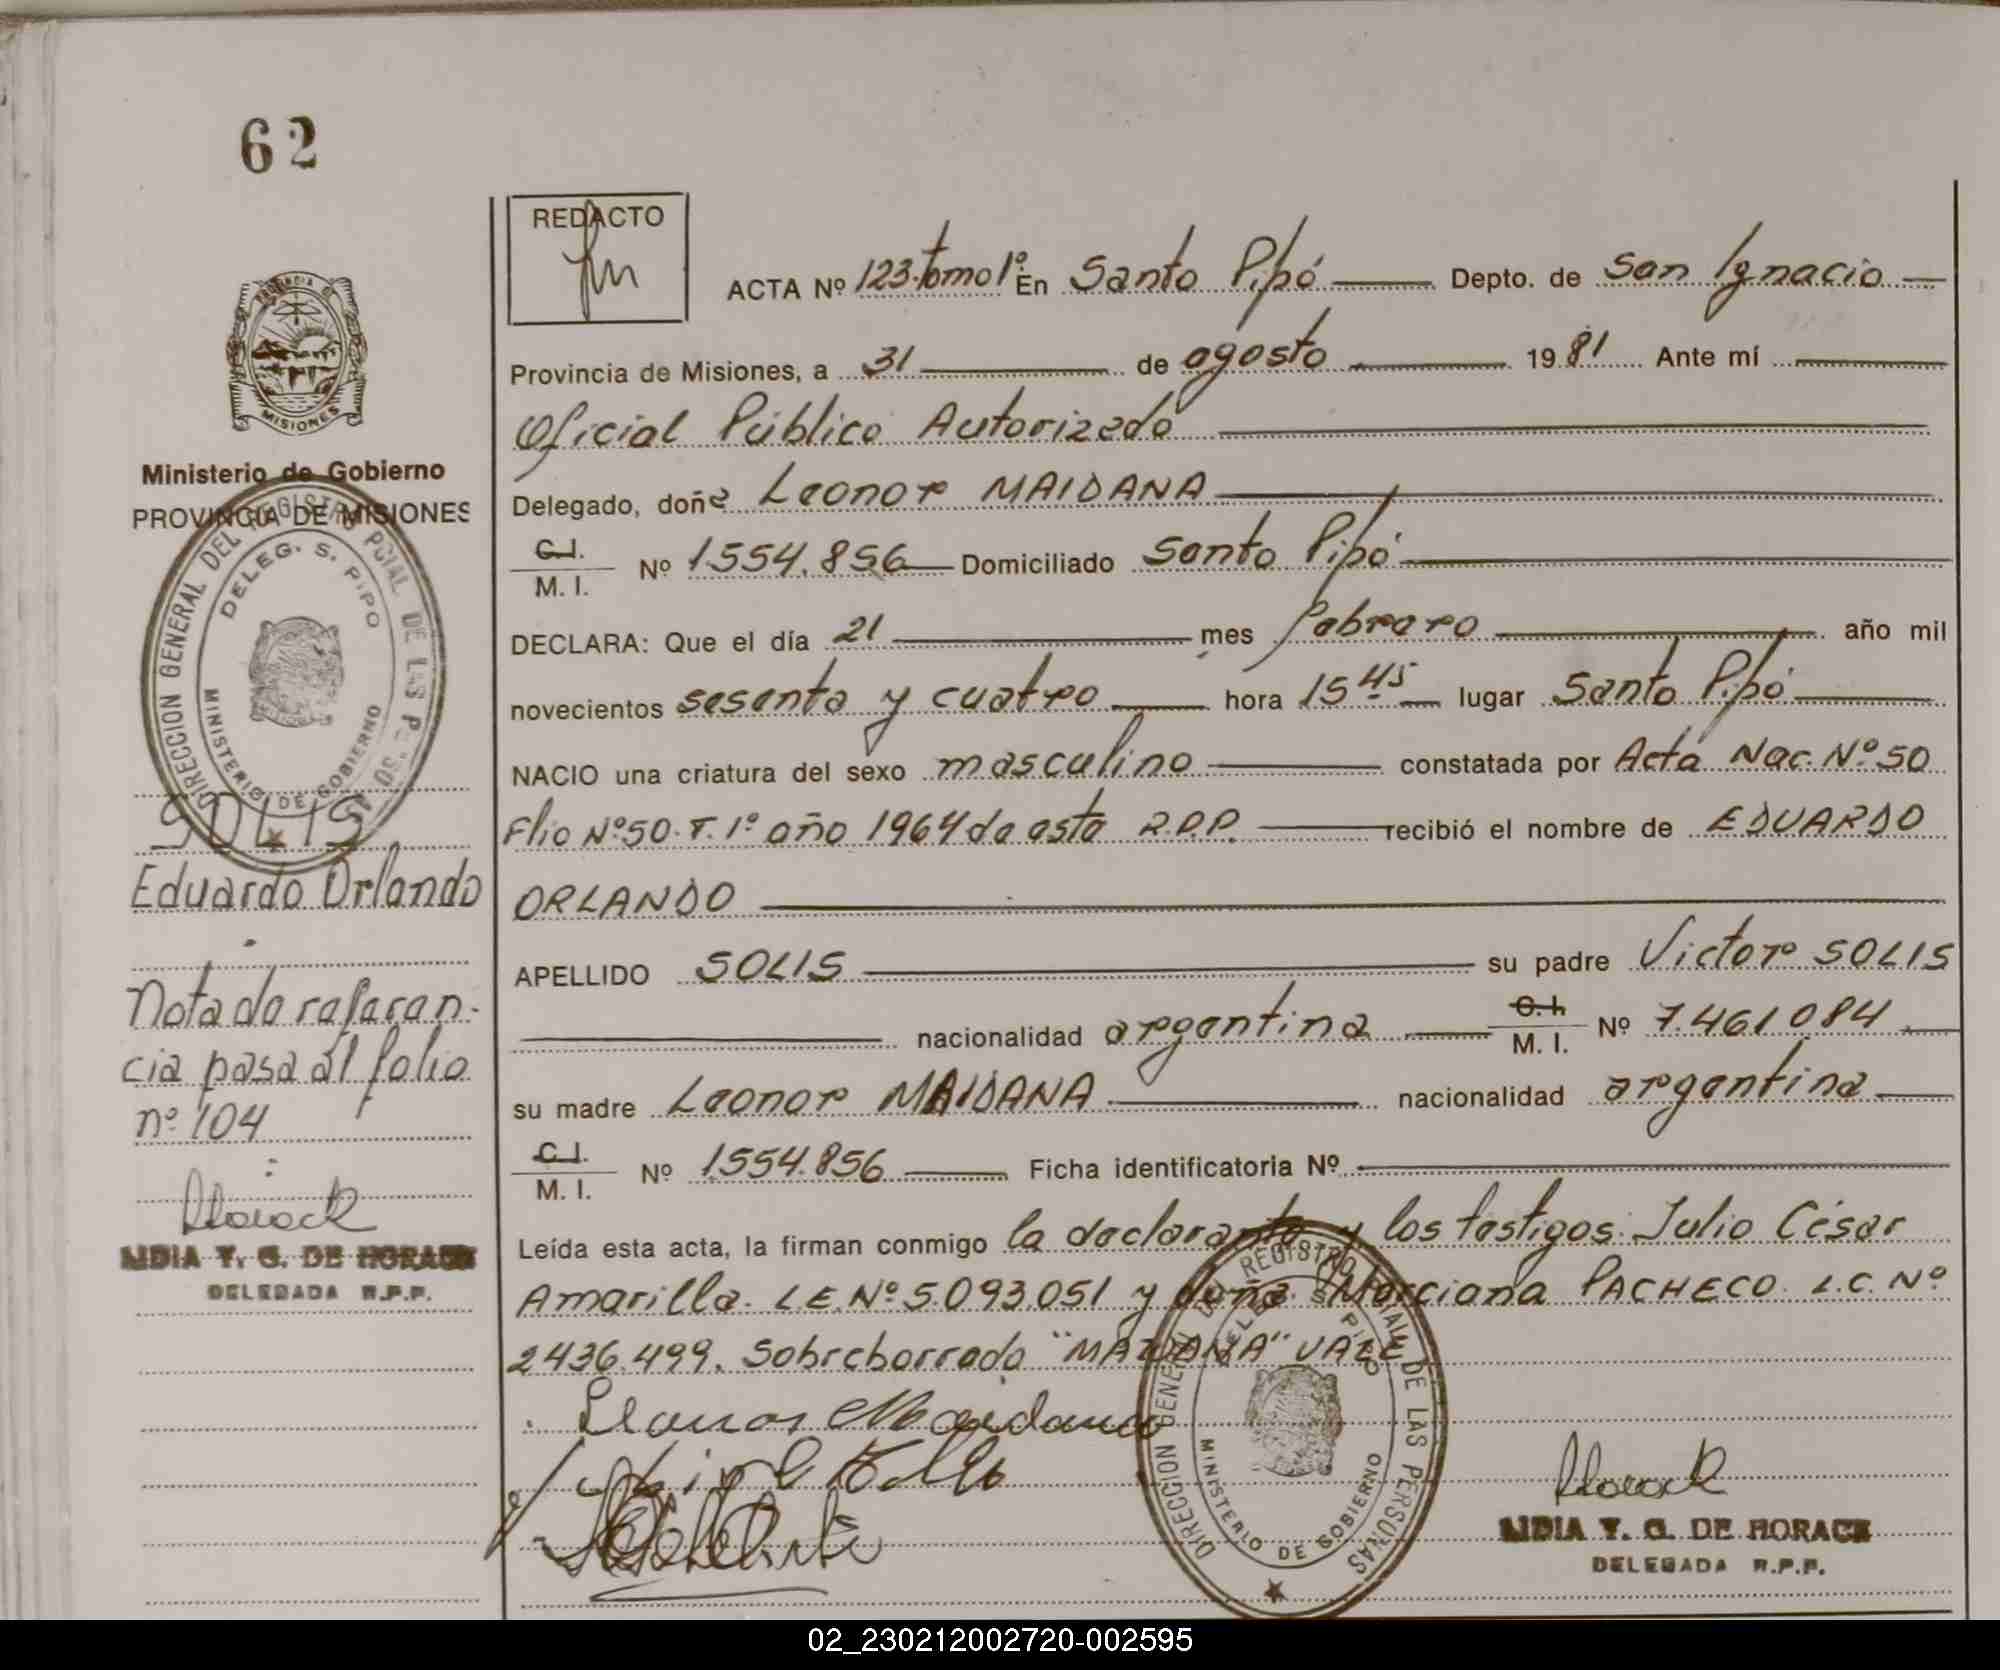 62
REDACTO
ACTA Nº 123-tomo 1º En Santo Pipó Depto. de San Ignacio
Provincia de Misiones, a 31 de agosto 1981 Ante mí
Oficial Público Autorizado
Delegado, doña Leonor MAIDANA
C.I. M. I. Nº 1.554.856 Domiciliado Santo Pipó
DECLARA: Que el día 21 mes febrero año mil
novecientos sesenta y cuatro hora 15 45 lugar Santo Pipó
NACIO una criatura del sexo masculino constatada por Acta Nac. Nº 50
Flio Nº 50. T. 1º año 1964 de esta R.P.P. recibió el nombre de EDUARDO
ORLANDO
APELLIDO SOLIS su padre Victor SOLIS
nacionalidad argentina C.I. M. I. Nº 7.461.084
su madre Leonor MAIDANA nacionalidad argentina
C.I. M. I. Nº 1.554.856 Ficha identificatoria Nº
Leída esta acta, la firman conmigo la declarante y los testigos: Julio César
Amarilla. L.E. Nº 5.093.051 y doña Marciana PACHECO. L.C. Nº
2.436.499. Sobreborrado "MAIDANA" VALE
LIDIA Y. G. DE HORACK
DELEGADA R.P.P.
PROVINCIA DE MISIONES
Ministerio de Gobierno
PROVINCIA DE MISIONES
DIRECCION GENERAL DEL REGISTRO PCIAL DE LAS PERSONAS
DELEG. S. PIPO
MINISTERIO DE GOBIERNO
SOLIS
Eduardo Orlando
Nota de referen-
cia pasa al folio
nº 104
Horack
LIDIA Y. G. DE HORACK
DELEGADA R.P.P.
DIRECCION GENERAL DEL REGISTRO PCIAL DE LAS PERSONAS
DELEG. S. PIPO
MINISTERIO DE GOBIERNO
02_230212002720-002595